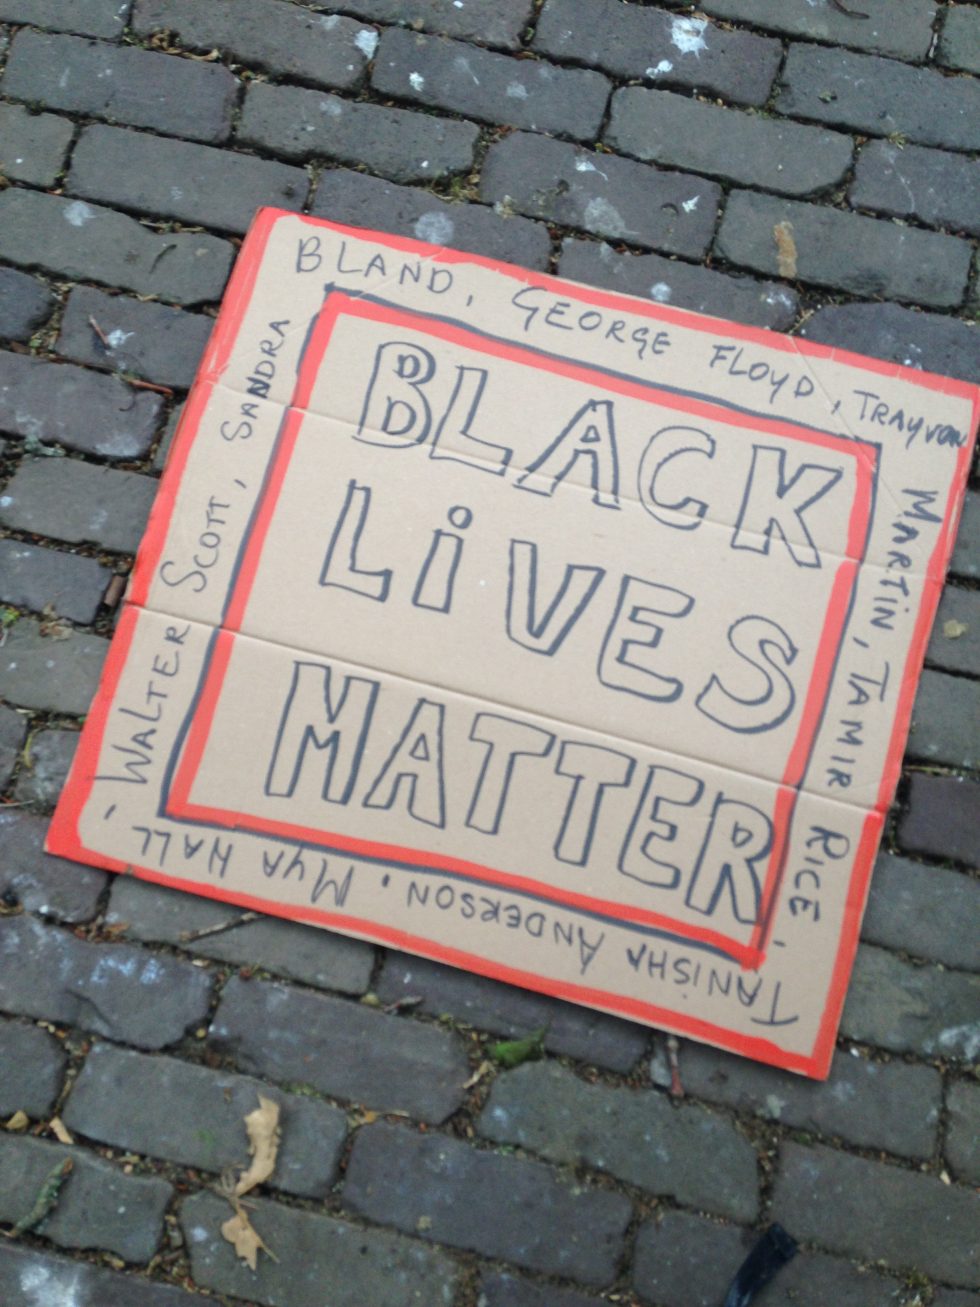 BLACK
LiVES
MATTER
BLAND, GEORGE FLOYD, TRAYVON
MARTiN, TAMIR RICE.
TANiSHA ANDERSON. MYA HALL.
WALTER SCOTT, SANDRA